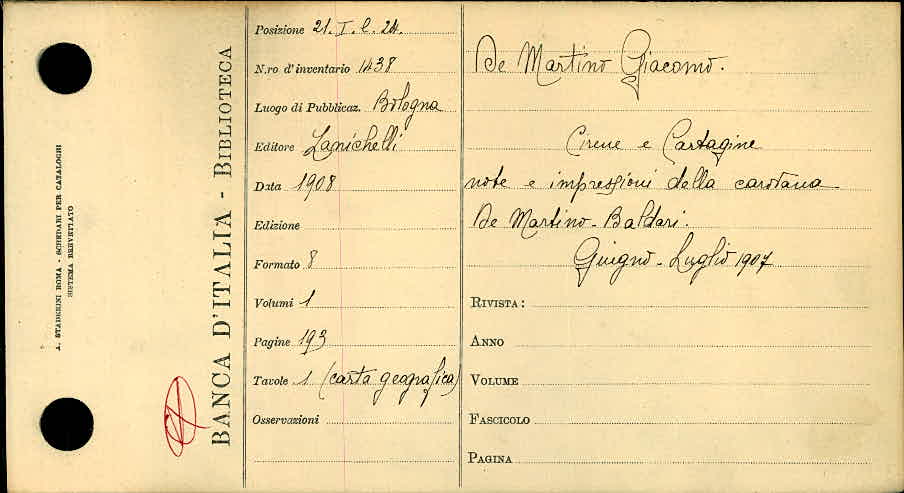 A. STADERINI ROMA - SCHEDARI PER CATALOGHI
SISTEMA BREVETTATO
BANCA D'ITALIA - BIBLIOTECA
Posizione 21. I. C. 24.
N.ro d'inventario 1438
Luogo di Pubblicaz. Bologna
Editore Zanichelli
Data 1908
Edizione
Formato 8
Volumi 1
Pagine 193
Tavole 1 (carta geografica)
Osservazioni
De Martino Giacomo.
Cirene e Cartagine
note e impressioni della carovana
De Martino-Baldari.
Giugno-Luglio 1907
RIVISTA:
ANNO
VOLUME
FASCICOLO
PAGINA